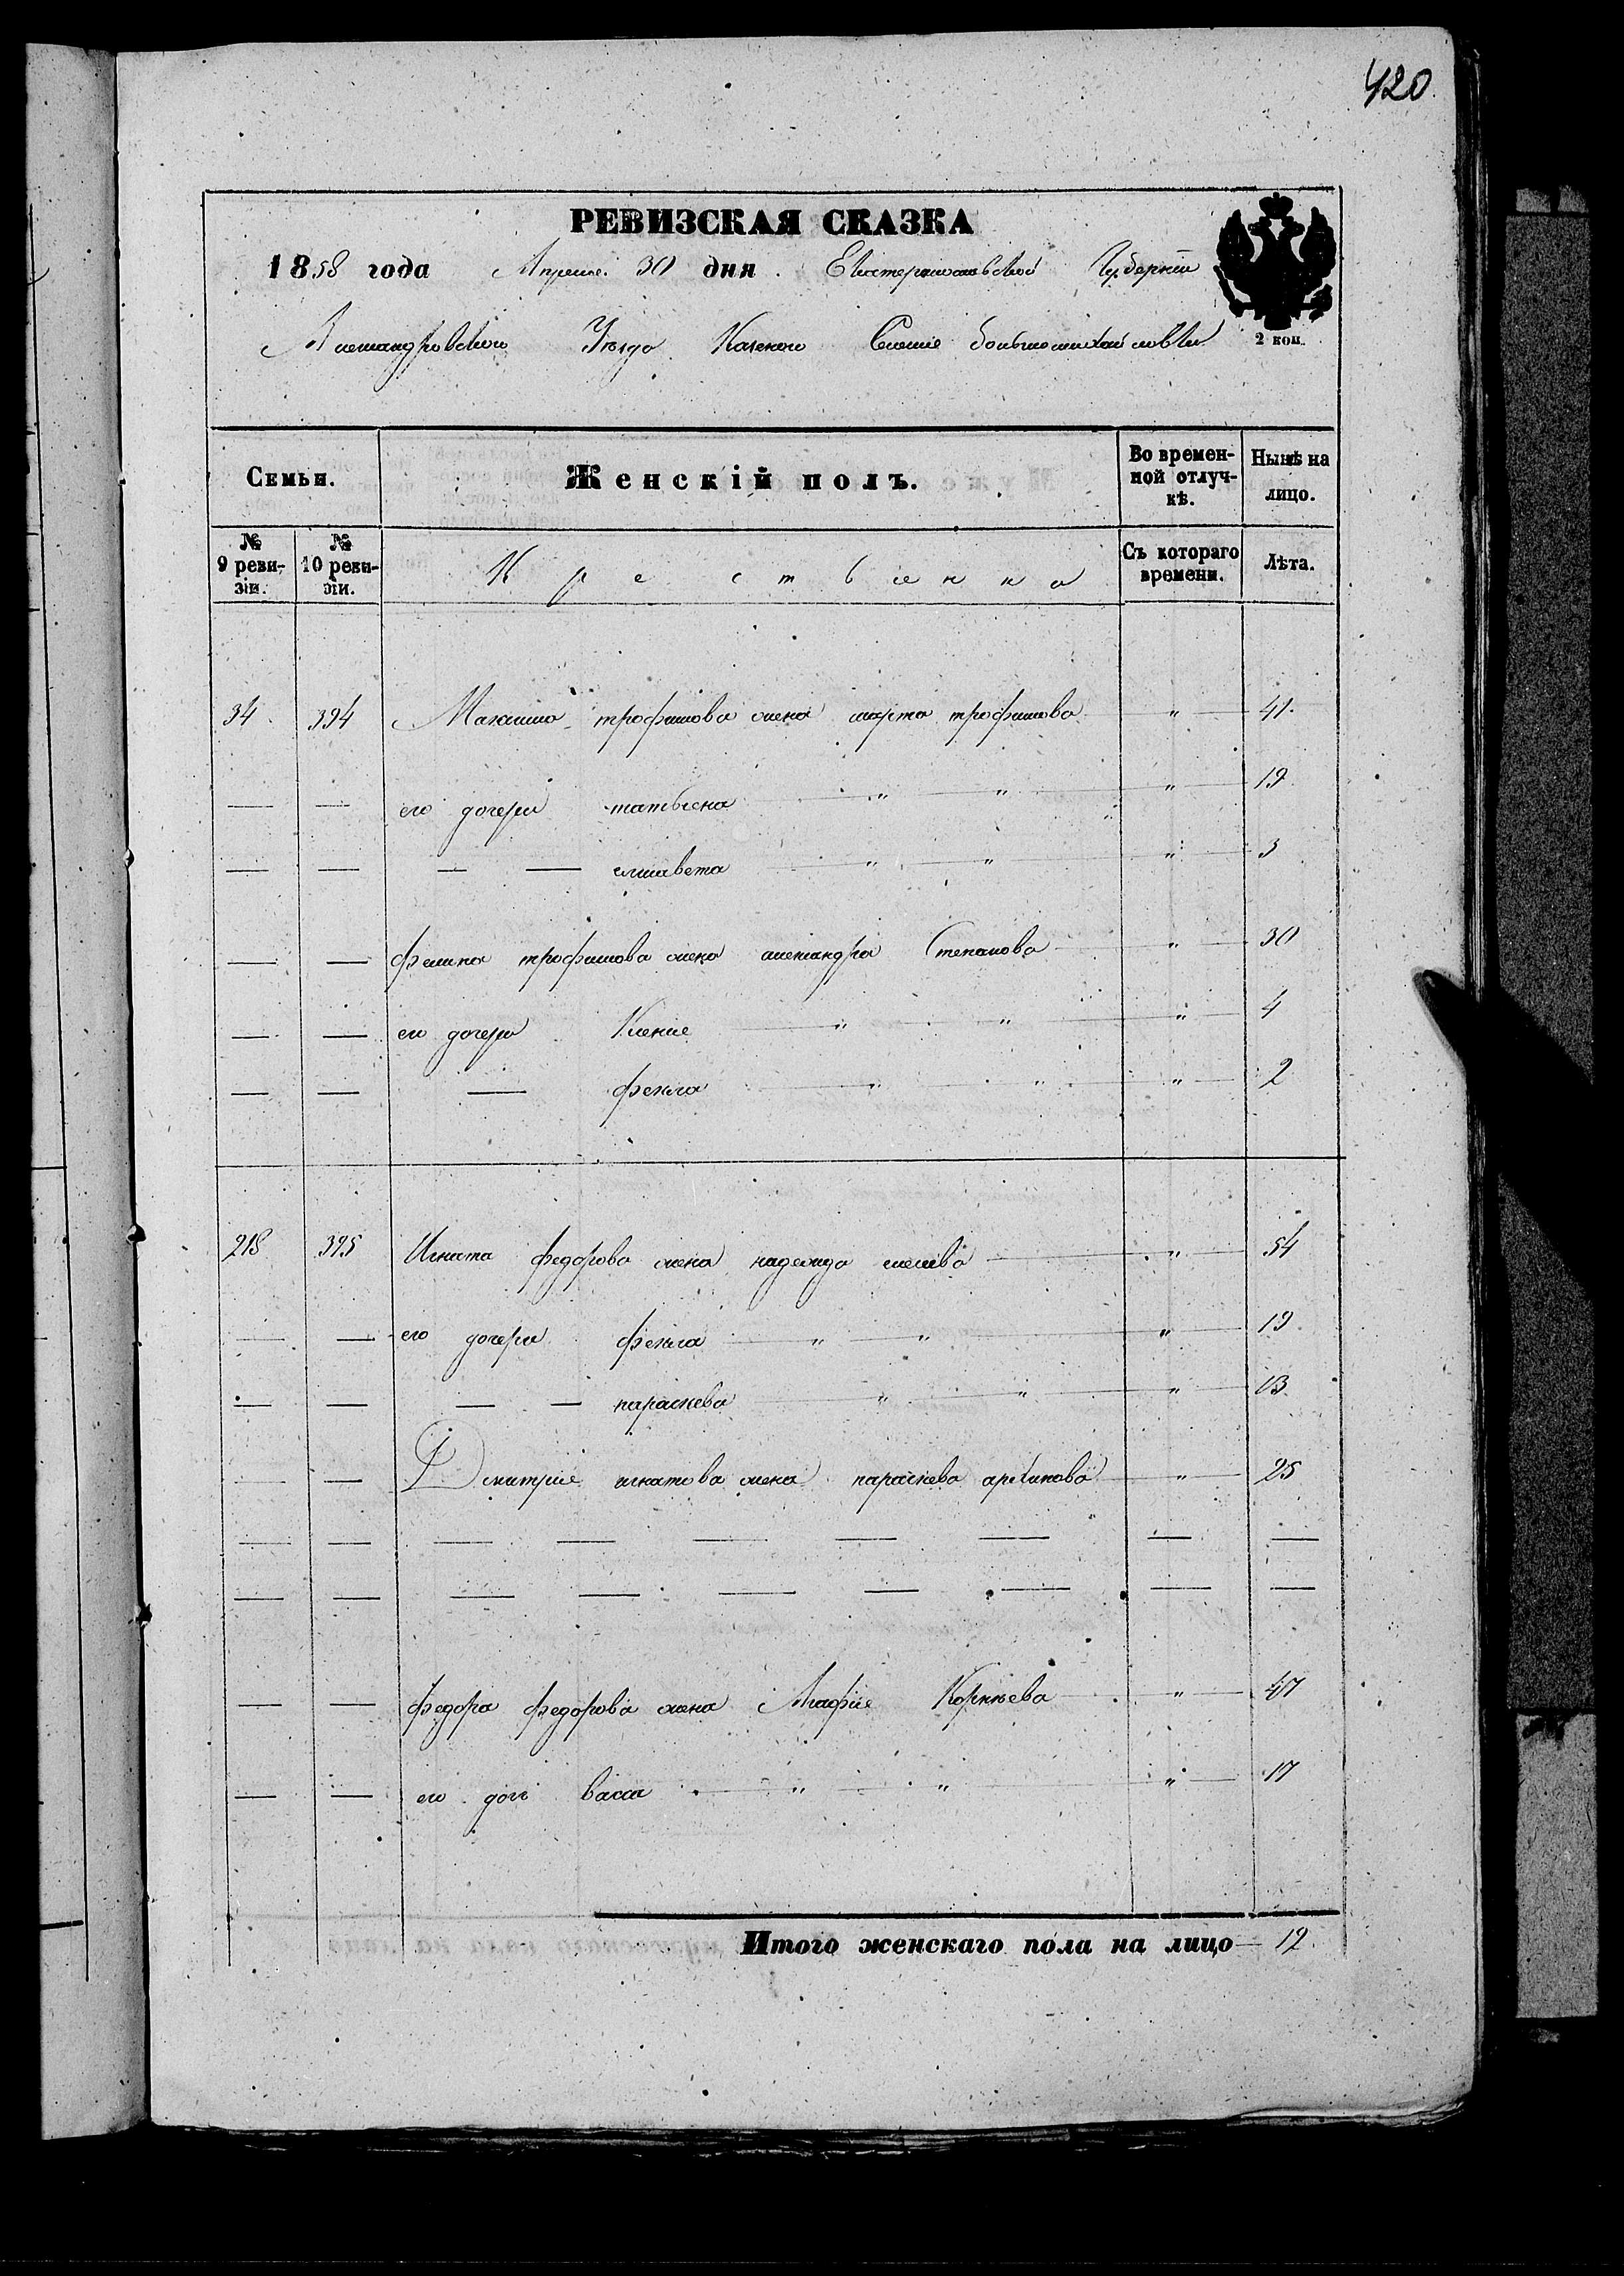 420
РЕВИЗСКАЯ СКАЗКА
1858 года Апреля 30 дня. Екатеринославской Губернии
Александровского Уезда Казеного Селение большомихайловки
2 коп.
Семьи. Женскій полъ. Во времен-ной отлуч-кѣ. Нынѣ на лицо.
№ 9 реви-зіи. № 10 реви-зіи. Крестьенка Съ котораго времени. Лѣта.
34 394 Максима трофимова жена марта трофимова " 41
— — его дочери татьяна " " " 19
— — — — елисавета " " " 3
— — филипа трофимова жена александра Степанова " 30
— — его дочери Ксение " " " 4
— — — фекла " " " 2
218 395 Игната федорова жена надежда " 54
— — его дочери фекла " " " 19
— — — — параскева " " " 13
— — Дмитрие игнатова жена параскева архипова " 25
— — — — — — — — —
— — — — — — — — —
— — федора федорова жена Агафие Корнеева " 47
— — его доч васса " " " 17
Итого женскаго пола на лицо — 12